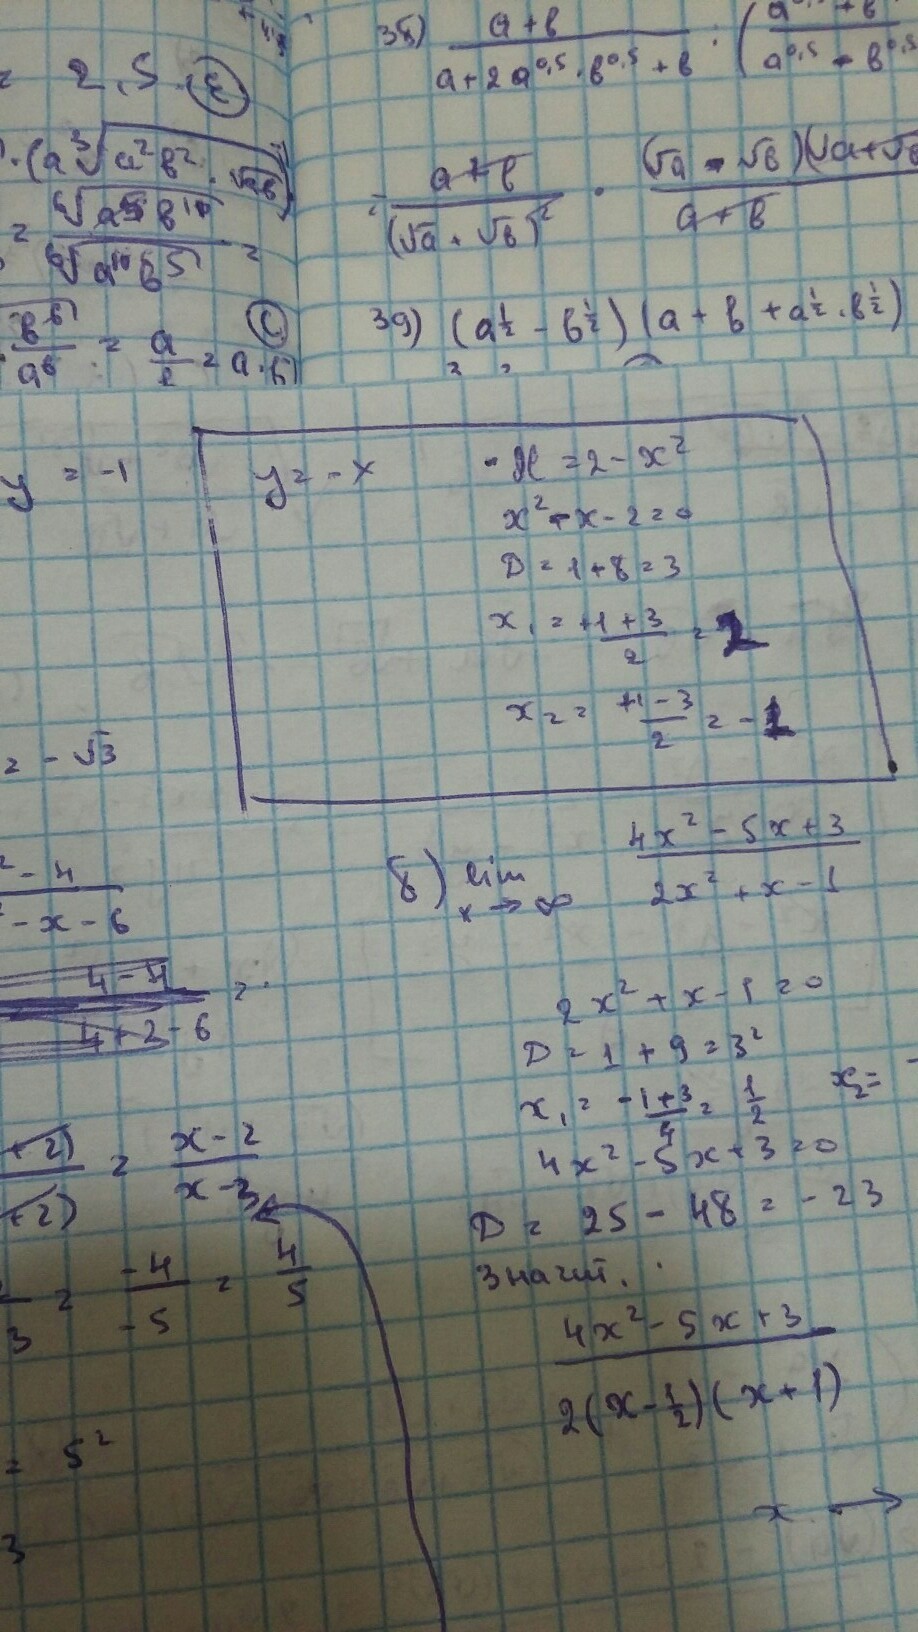 = 2,5. E
·(a∛(a²b²·√ab))
= ⁶√(a¹⁶b¹⁰) / ⁶√(a¹⁰b⁵) =
b⁶ / a⁶ = a / b = a·b C
38) (a+b) / (a+2a^0,5·b^0,5+b) : (
a^0,5 - b^0,5
= (a+b) / (√a+√b)² · (√a-√b)(√a+√b) / (a+b)
39) (a^½ - b^½)(a + b + a^½·b^½)
y = -1
y = -x
-x = 2 - x²
x² - x - 2 = 0
D = 1+8 = 3
x₁ = (+1+3)/2 = 2
x₂ = (+1-3)/2 = -1
= -√3
² - 4
² - x - 6
4-4
4+2-6 =
+2) / +2) = (x-2)/(x-3)
3 = -4/-5 = 4/5
= 5²
3
б) lim x→∞ (4x² - 5x + 3) / (2x² + x - 1)
2x² + x - 1 = 0
D = 1 + 9 = 3²
x₁ = (-1+3)/4 = 1/2 x₂ = -
4x² - 5x + 3 = 0
D = 25 - 48 = -23
Значит.
(4x² - 5x + 3) / 2(x - ½)(x + 1)
x →